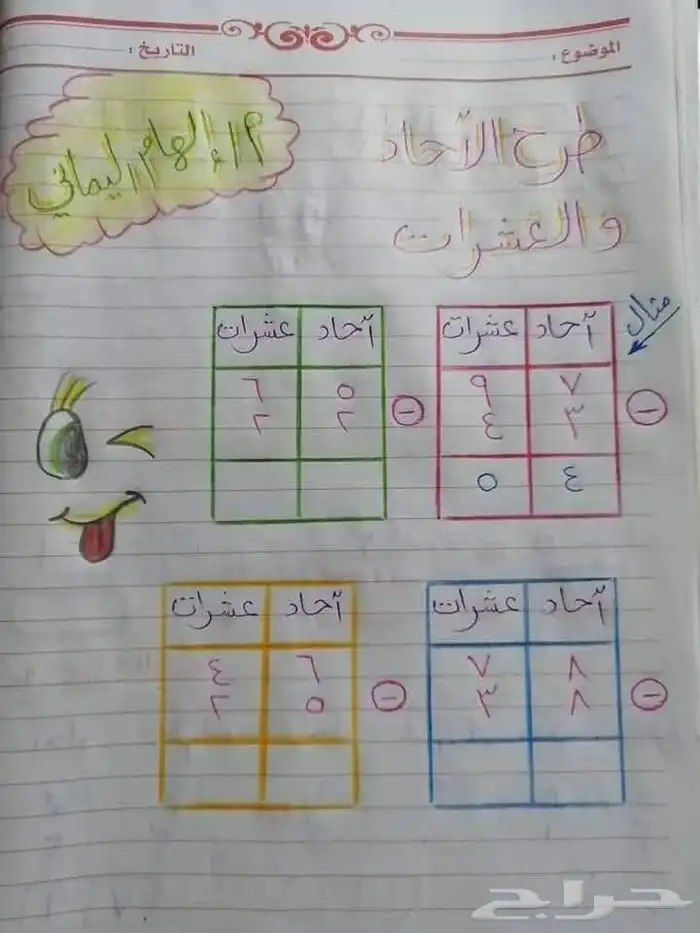 الموضوع :
التاريخ :
م/١ إلهام اليماني
طرح الآحاد
والعشرات
مثال
آحاد عشرات
٧ ٩
٣ ٤
٤ ٥
−
آحاد عشرات
٥ ٦
٢ ٢
−
آحاد عشرات
٨ ٧
٨ ٣
−
آحاد عشرات
٦ ٤
٥ ٢
−
حراج